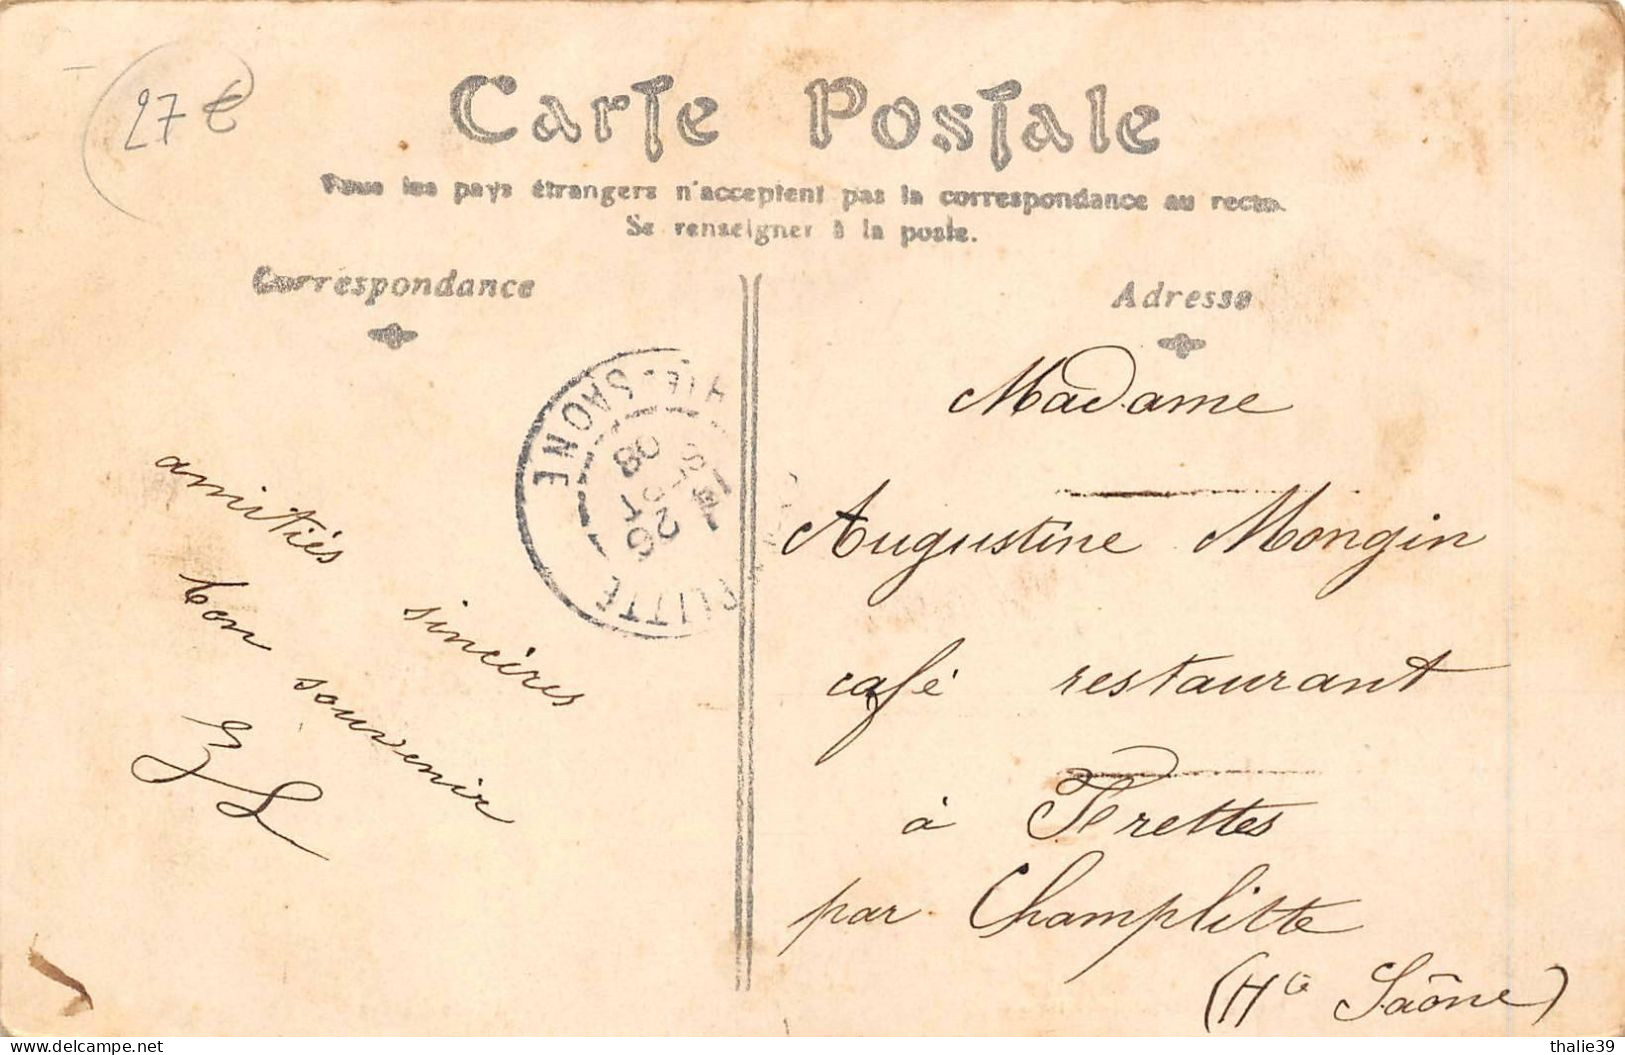 27 €
Carte Postale
Tous les pays étrangers n'acceptent pas la correspondance au recto.
Se renseigner à la poste.
Correspondance
Adresse
amitiés sincères
bon souvenir
HTE-SAONE
26
08
Madame
Augustine Mongin
café restaurant
à
par Champlitte
(Hte Saône)
www.delcampe.net
thalie39